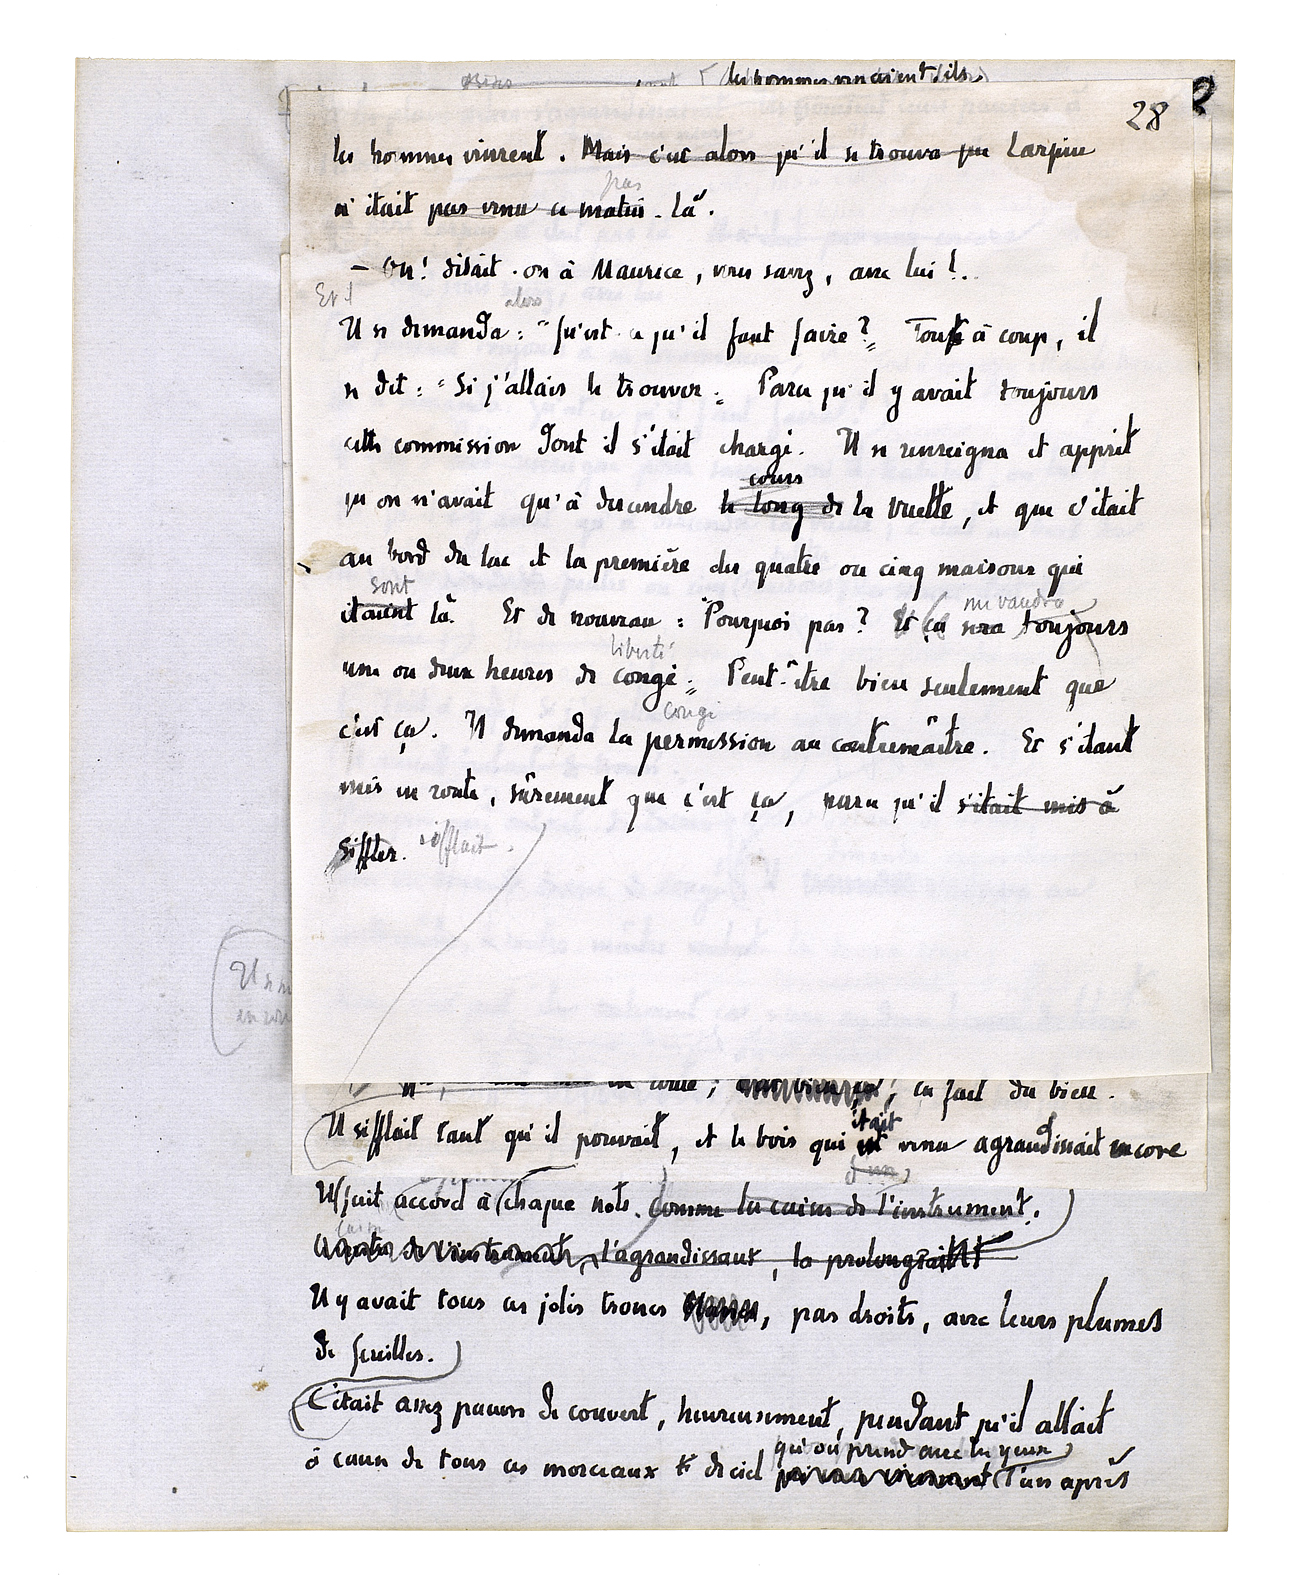 les hommes venaient, ils
28
2
les hommes vinrent. Mais c'est alors qu'il se trouva que Larpin
pas
n'était pas venu ce matin-là.
— Oh! disait-on à Maurice, vous savez, avec lui!..
Et il
alors
Il se demanda : "Qu'est-ce qu'il faut faire?" Tout à coup, il
se dit : "Si j'allais le trouver." Parce qu'il y avait toujours
cette commission dont il s'était chargé. Il se renseigna et apprit
cours
qu'on n'avait qu'à descendre le long de la Vuette, et que c'était
au bord du lac et la première des quatre ou cinq maisons qui
sont
étaient là. Et de nouveau : "Pourquoi pas? Et ça sera toujours
me vaudra
liberté
une ou deux heures de congé." Peut-être bien seulement que
congé
c'est ça. Il demanda la permission au contremaître. Et s'étant
mis en route, sûrement que c'est ça, parce qu'il s'était mis à
siffler. sifflait.
Il se
en route; ça fait du bien.
était
Il sifflait tant qu'il pouvait, et le bois qui est venu agrandissait encore
d'un
Il fait accord à chaque note. Comme la caisse de l'instrument.
caisse
de l'instrument, l'agrandissant, la prolongeait
Il y avait tous ces jolis troncs, pas droits, avec leurs plumes
de feuilles.
C'était assez pauvre de couvert, heureusement, pendant qu'il allait
qu'on prend avec les yeux
à cause de tous ces morceaux de ciel qui vous viennent l'un après